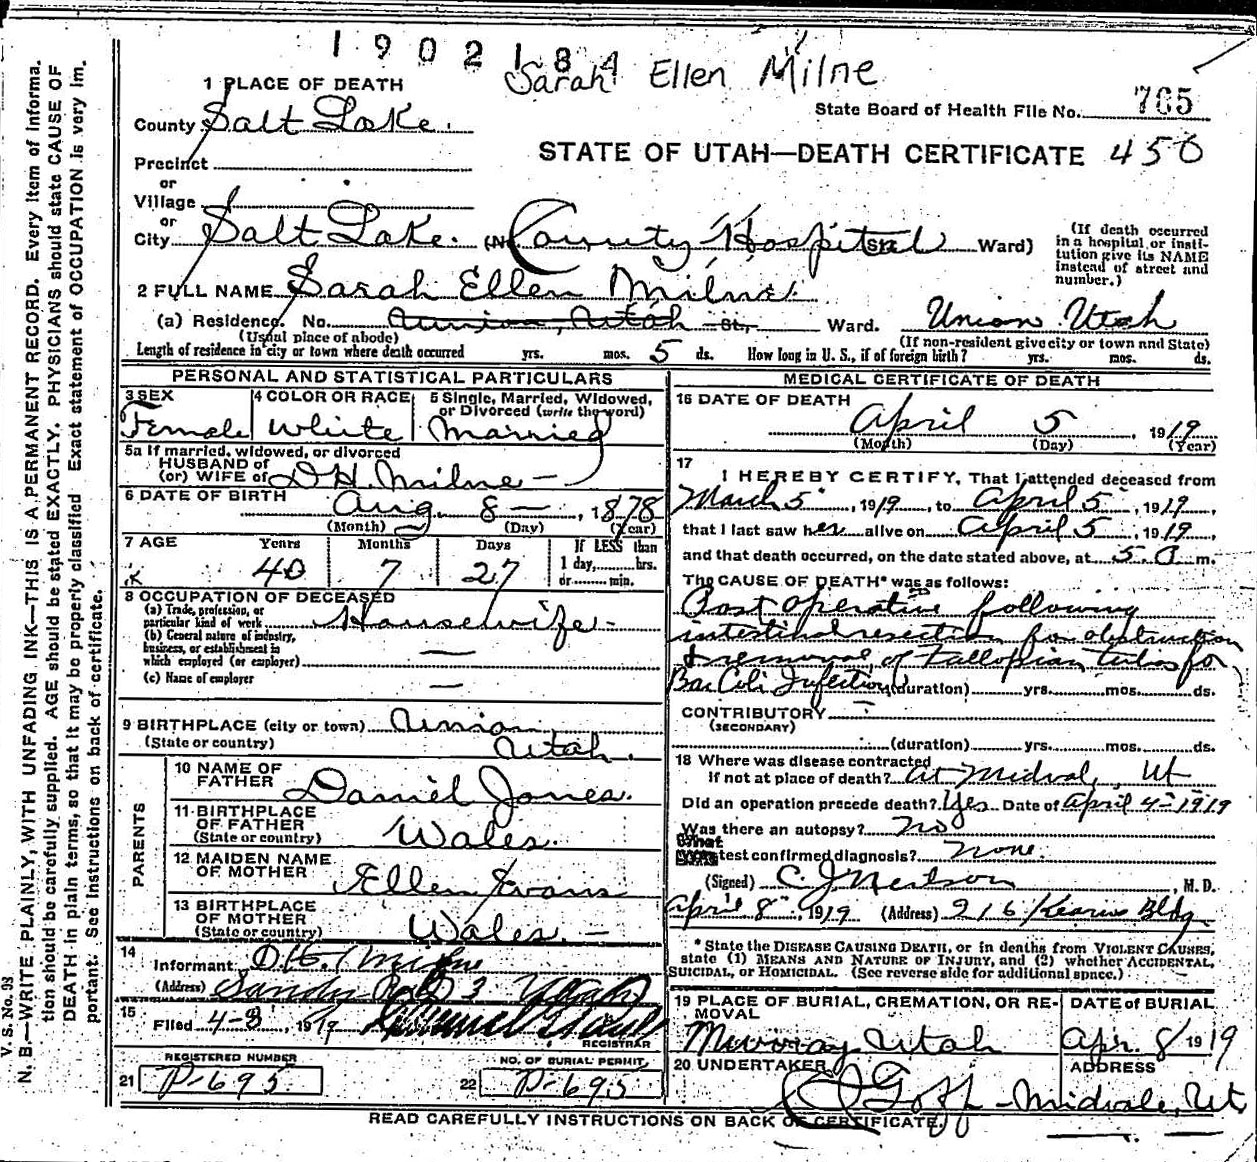 1902184
Sarah Ellen Milne
1 PLACE OF DEATH
State Board of Health File No. 765
County Salt Lake.
STATE OF UTAH—DEATH CERTIFICATE 450
Precinct
or
Village
or
City Salt Lake. (No. County Hospital St. Ward)
(If death occurred in a hospital or institution give its NAME instead of street and number.)
2 FULL NAME Sarah Ellen Milne.
(a) Residence. No. Union, Utah St., Ward. Union Utah
(Usual place of abode) (If non-resident give city or town and State)
Length of residence in city or town where death occurred yrs. mos. 5 ds. How long in U. S., if of foreign birth? yrs. mos. ds.
PERSONAL AND STATISTICAL PARTICULARS
3 SEX Female
4 COLOR OR RACE White
5 Single, Married, Widowed, or Divorced (write the word) Married
5a If married, widowed, or divorced
HUSBAND of
(or) WIFE of D H. Milne —
6 DATE OF BIRTH Aug. 8 — , 1878
(Month) (Day) (Year)
7 AGE Years 40 Months 7 Days 27 If LESS than 1 day, hrs. or min.
8 OCCUPATION OF DECEASED
(a) Trade, profession, or particular kind of work Housewife -
(b) General nature of industry, business, or establishment in which employed (or employer) —
(c) Name of employer —
9 BIRTHPLACE (city or town) Union
(State or country) Utah.
PARENTS
10 NAME OF FATHER Daniel Jones.
11 BIRTHPLACE OF FATHER (State or country) Wales.
12 MAIDEN NAME OF MOTHER Ellen Evans
13 BIRTHPLACE OF MOTHER (State or country) Wales. —
14 Informant D H. Milne
(Address) Sandy 3 Utah
15 Filed 4-8, 1919
REGISTRAR
21 REGISTERED NUMBER P-695
22 NO. OF BURIAL PERMIT P-695
MEDICAL CERTIFICATE OF DEATH
16 DATE OF DEATH
April 5 , 1919
(Month) (Day) (Year)
17 I HEREBY CERTIFY, That I attended deceased from
March 5 , 1919, to April 5 , 1919,
that I last saw her alive on April 5 , 1919,
and that death occurred, on the date stated above, at 5 a m.
The CAUSE OF DEATH* was as follows:
Post operative following
intestinal resection for obstruction
& removal of Fallopian tubes for
Bac Coli Infection (duration) yrs. mos. ds.
CONTRIBUTORY
(SECONDARY)
(duration) yrs. mos. ds.
18 Where was disease contracted
If not at place of death? At Midval, Ut
Did an operation precede death? Yes. Date of April 4-1919
Was there an autopsy? no
What test confirmed diagnosis? none.
(Signed) C. J. Neilson, M. D.
April 8, 1919 (Address) 916 Kearns Bldg
* State the DISEASE CAUSING DEATH, or in deaths from VIOLENT CAUSES, state (1) MEANS AND NATURE OF INJURY, and (2) whether ACCIDENTAL, SUICIDAL, or HOMICIDAL. (See reverse side for additional space.)
19 PLACE OF BURIAL, CREMATION, OR REMOVAL Murray Utah
DATE OF BURIAL Apr. 8 1919
20 UNDERTAKER Goff
ADDRESS Midvale, Ut
READ CAREFULLY INSTRUCTIONS ON BACK OF CERTIFICATE.
V. S. No. 33
N. B.—WRITE PLAINLY, WITH UNFADING INK—THIS IS A PERMANENT RECORD. Every item of informa-
tion should be carefully supplied. AGE should be stated EXACTLY. PHYSICIANS should state CAUSE OF
DEATH in plain terms, so that it may be properly classified. Exact statement of OCCUPATION is very im-
portant. See instructions on back of certificate.